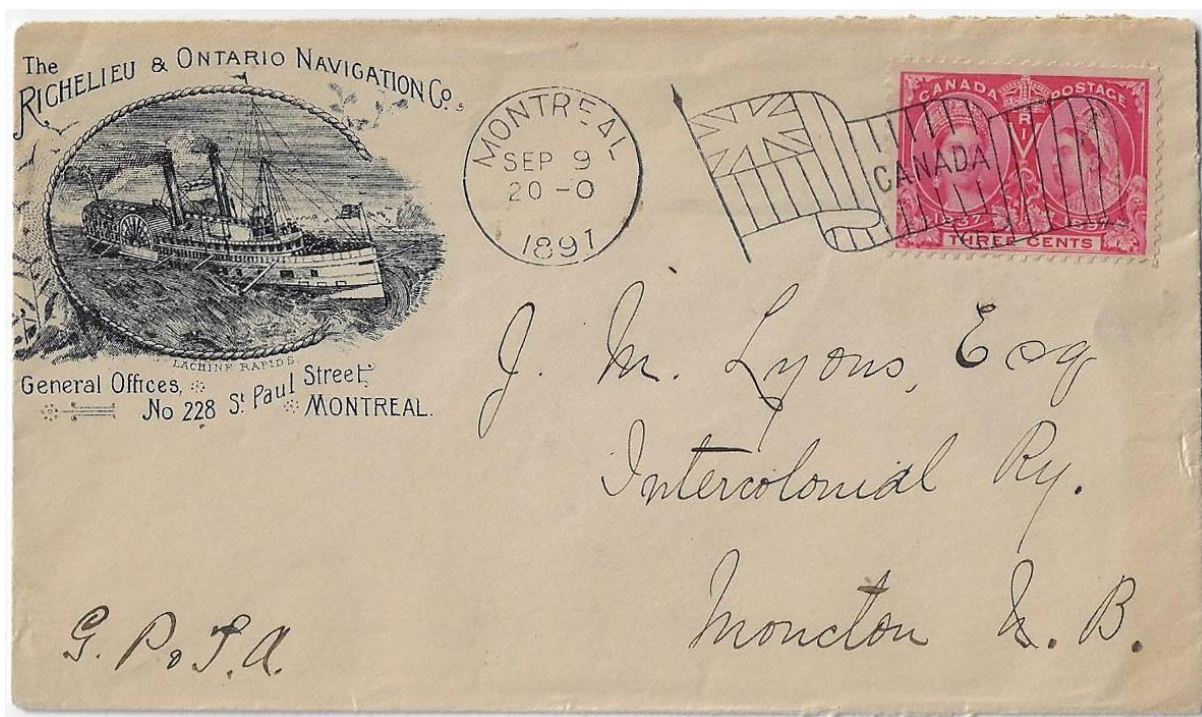 The
RICHELIEU & ONTARIO NAVIGATION Co.
LACHINE RAPIDS.
General Offices,
No 228 St Paul Street,
MONTREAL.
MONTREAL
SEP 9
20-0
1897
CANADA
CANADA POSTAGE
V R I
1837 1897
THREE CENTS
J. M. Lyons, Esq
Intercolonial Ry.
Moncton N. B.
G. P. & T. A.